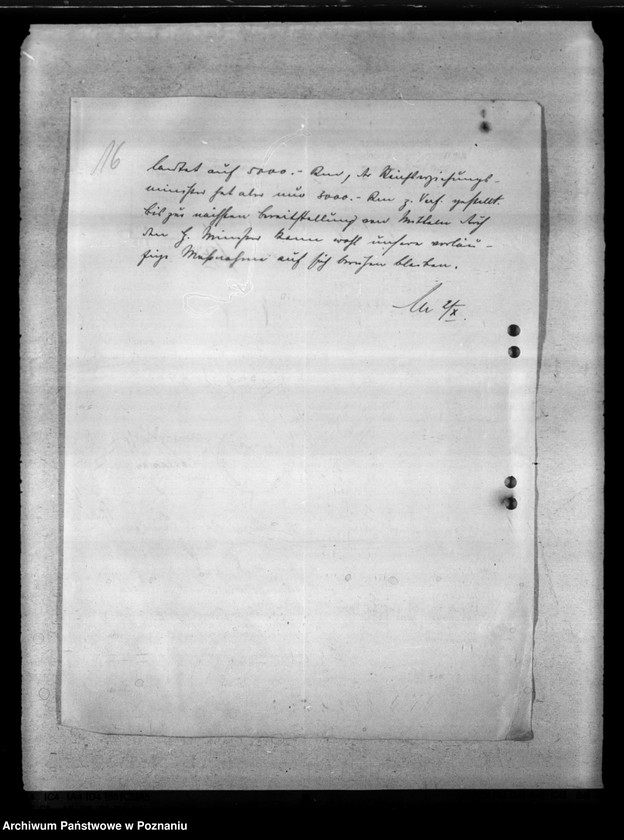 16
lautet auf 5000.- Rm, der Reichserziehungs-
minister hat aber nur 3000.- Rm z. Verf. gestellt.
Bis zur nächsten Bereitstellung von Mitteln durch
den H. Minister kann wohl unsere vorläu-
fige Maßnahme auf sich beruhen bleiben.
2/X.
Archiwum Państwowe w Poznaniu